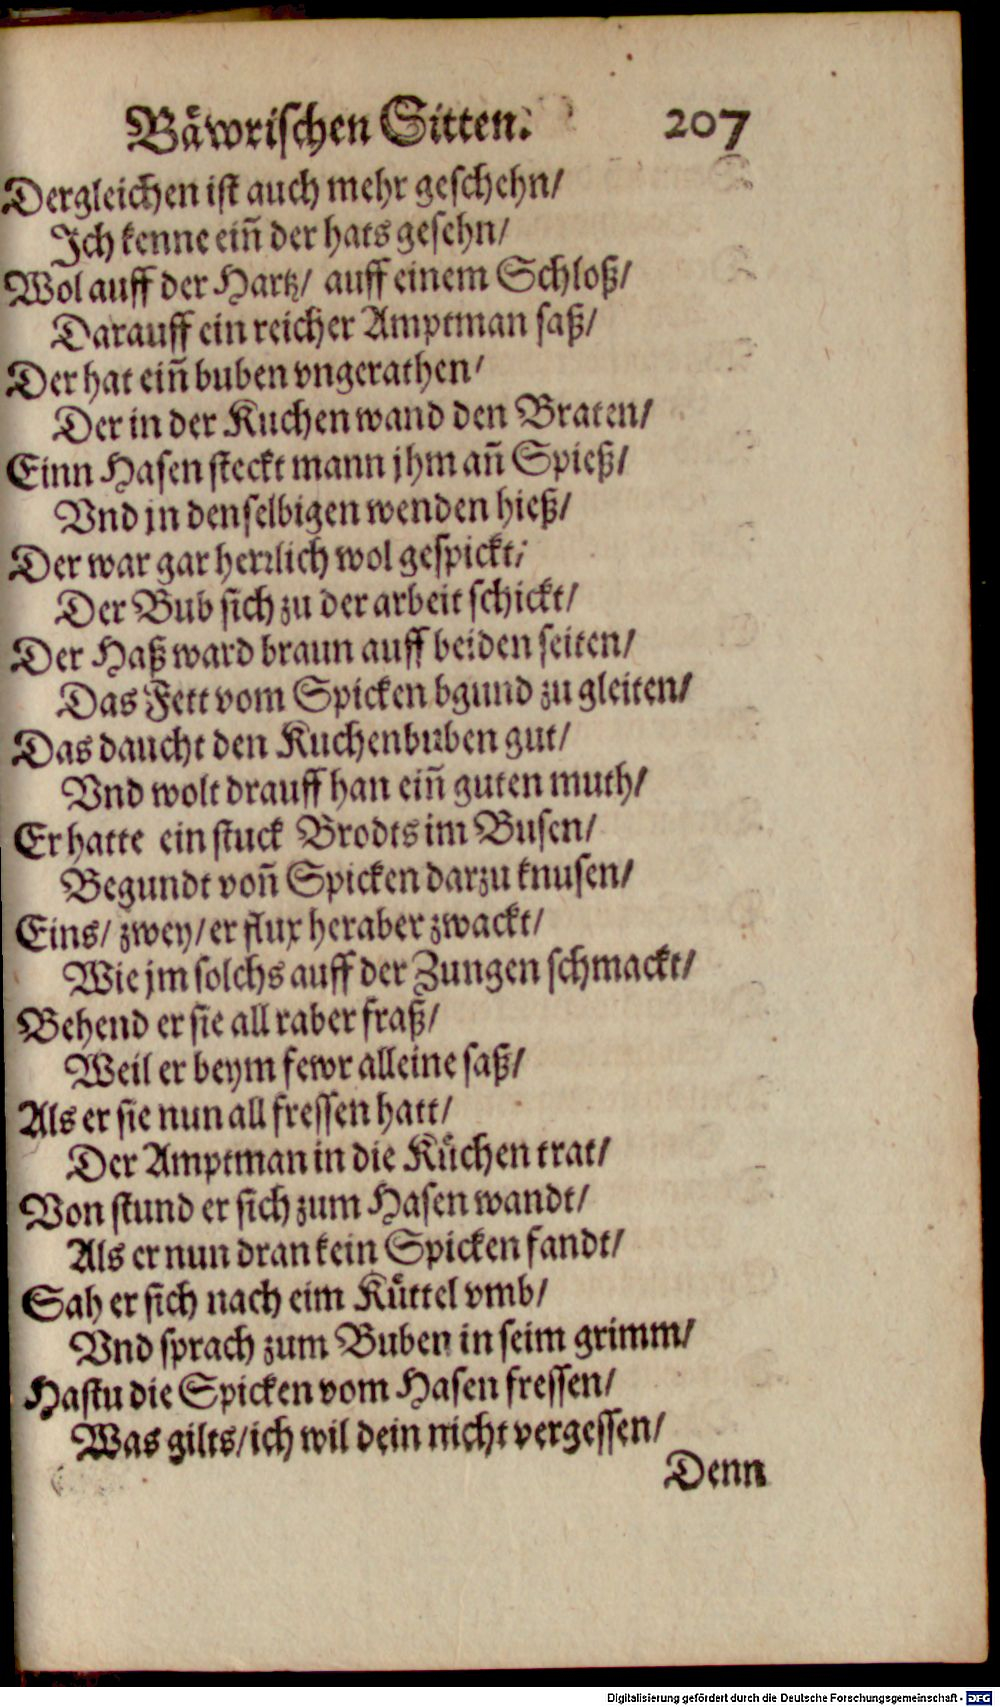 Bäwrischen Sitten. 207
Dergleichen ist auch mehr geschehn/
Ich kenne eiñ der hats gesehn/
Wol auff der Hartz/ auff einem Schloß/
Darauff ein reicher Amptman saß/
Der hat eiñ buben vngerathen/
Der in der Kuchen wand den Braten/
Einn Hasen steckt mann jhm añ Spieß/
Vnd jn denselbigen wenden hieß/
Der war gar herrlich wol gespickt/
Der Bub sich zu der arbeit schickt/
Der Haß ward braun auff beiden seiten/
Das Fett vom Spicken bgund zu gleiten/
Das daucht den Kuchenbuben gut/
Vnd wolt drauff han eiñ guten muth/
Er hatte ein stuck Brodts im Busen/
Begundt voñ Spicken darzu knusen/
Eins/ zwey/ er flux heraber zwackt/
Wie jm solchs auff der Zungen schmackt/
Behend er sie all raber fraß/
Weil er beym fewr alleine saß/
Als er sie nun all fressen hatt/
Der Amptman in die Küchen trat/
Von stund er sich zum Hasen wandt/
Als er nun dran kein Spicken fandt/
Sah er sich nach eim Küttel vmb/
Vnd sprach zum Buben in seim grimm/
Hastu die Spicken vom Hasen fressen/
Was gilts/ ich wil dein nicht vergessen/
Denn
Digitalisierung gefördert durch die Deutsche Forschungsgemeinschaft - DFG